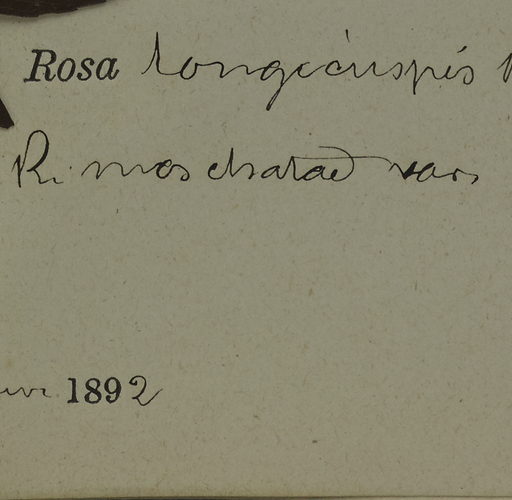 Rosa longicuspis
R. moschatae var.
1892